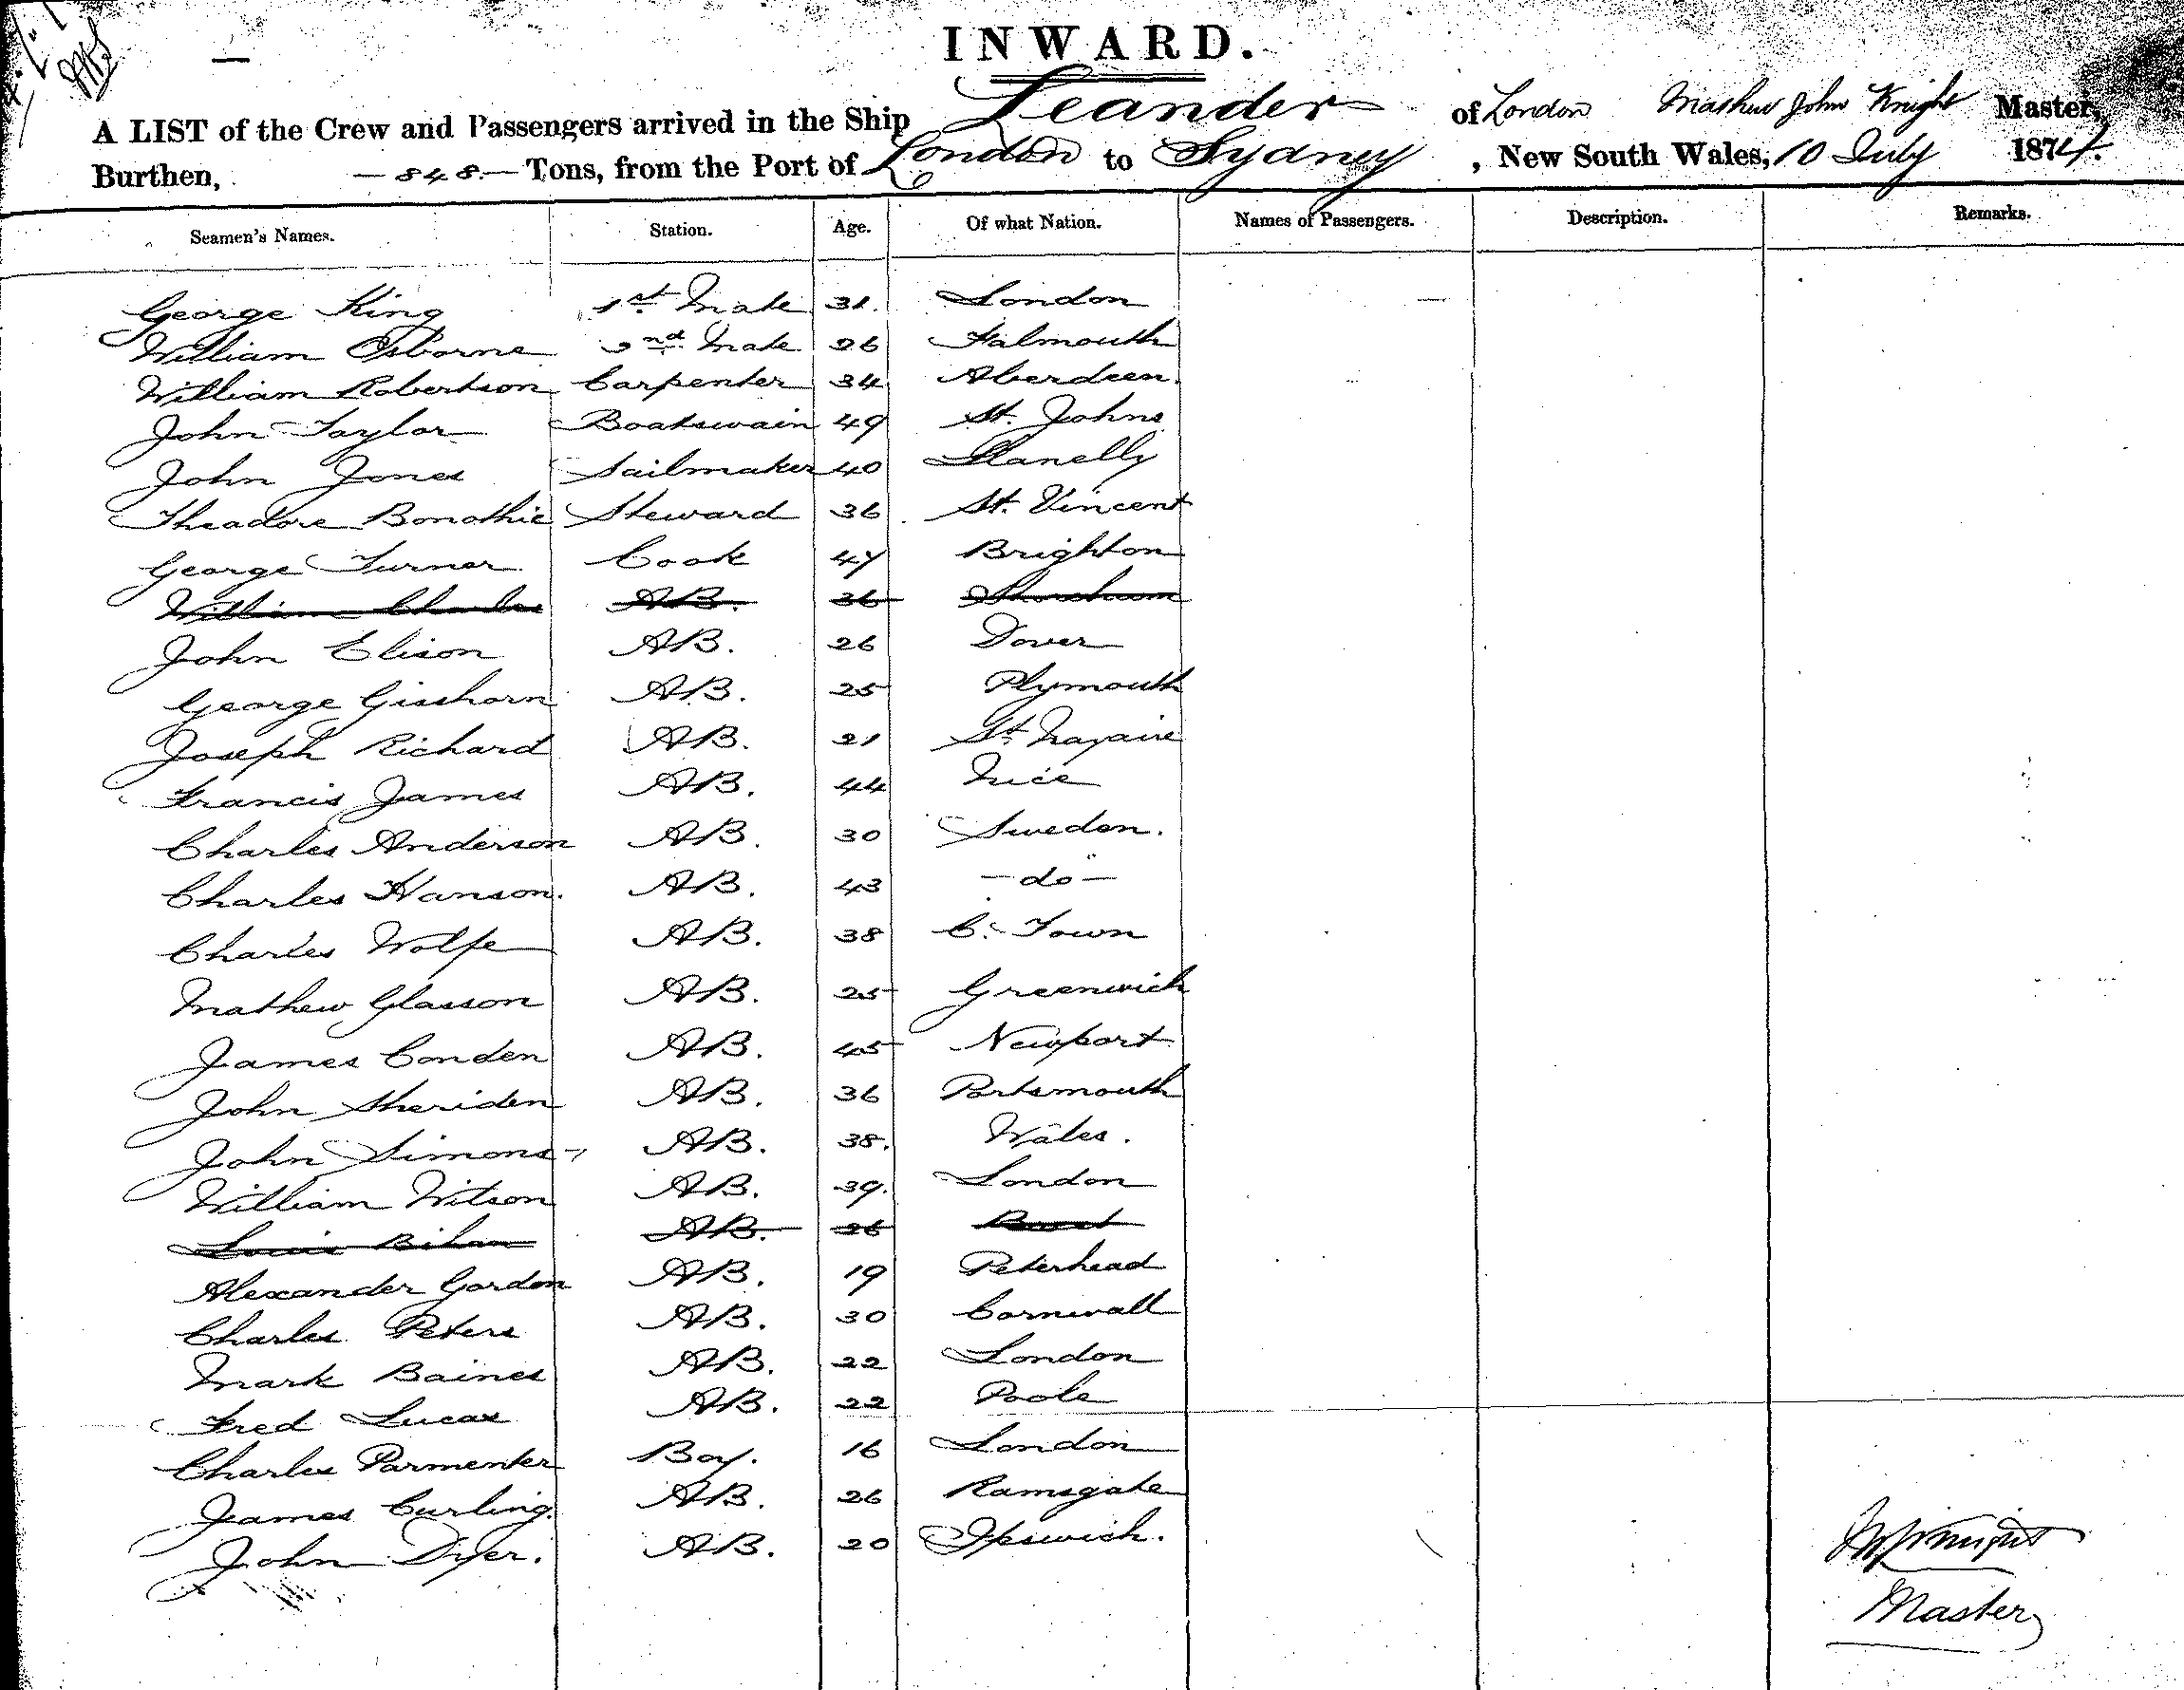 INWARD.
A LIST of the Crew and Passengers arrived in the Ship Leander of London Mathew John Knight Master,
Burthen, - 848 - Tons, from the Port of London to Sydney, New South Wales, 10 July 1874.
Seamen's Names. Station. Age. Of what Nation. Names of Passengers. Description. Remarks.
George King 1st Mate 31. London
William Osborne 2nd Mate 26 Falmouth
William Robertson Carpenter 34 Aberdeen.
John Taylor Boatswain 49 St. Johns
John Jones Sailmaker 40 Llanelly
Theadore Bonathie Steward 36 St. Vincent
George Turner Cook 47 Brighton
William Charles AB. 36 Shoreham
John Elison AB. 26 Dover
George Gisshorn AB. 25 Plymouth
Joseph Richard AB. 21 St. Nazaire
Francis James AB. 44 Nice
Charles Anderson AB. 30 Sweden.
Charles Hanson. AB. 43 - do -
Charles Wolfe AB. 38 C. Town
Mathew Glasson AB. 25 Greenwich
James Conden AB. 45 Newport
John Sheriden AB. 36 Portsmouth
John Simons AB. 38. Wales.
William Witson AB. 39. London
Louis Bihan AB. 26
Alexander Gordon AB. 19 Peterhead
Charles Peters AB. 30 Cornwall
Mark Baines AB. 22 London
Fred Lucas AB. 22 Poole
Charles Parmenter Boy. 16 London
James Curling. AB. 26 Ramsgate
John Dyer. AB. 20 Ipswich.
MJKnight
Master